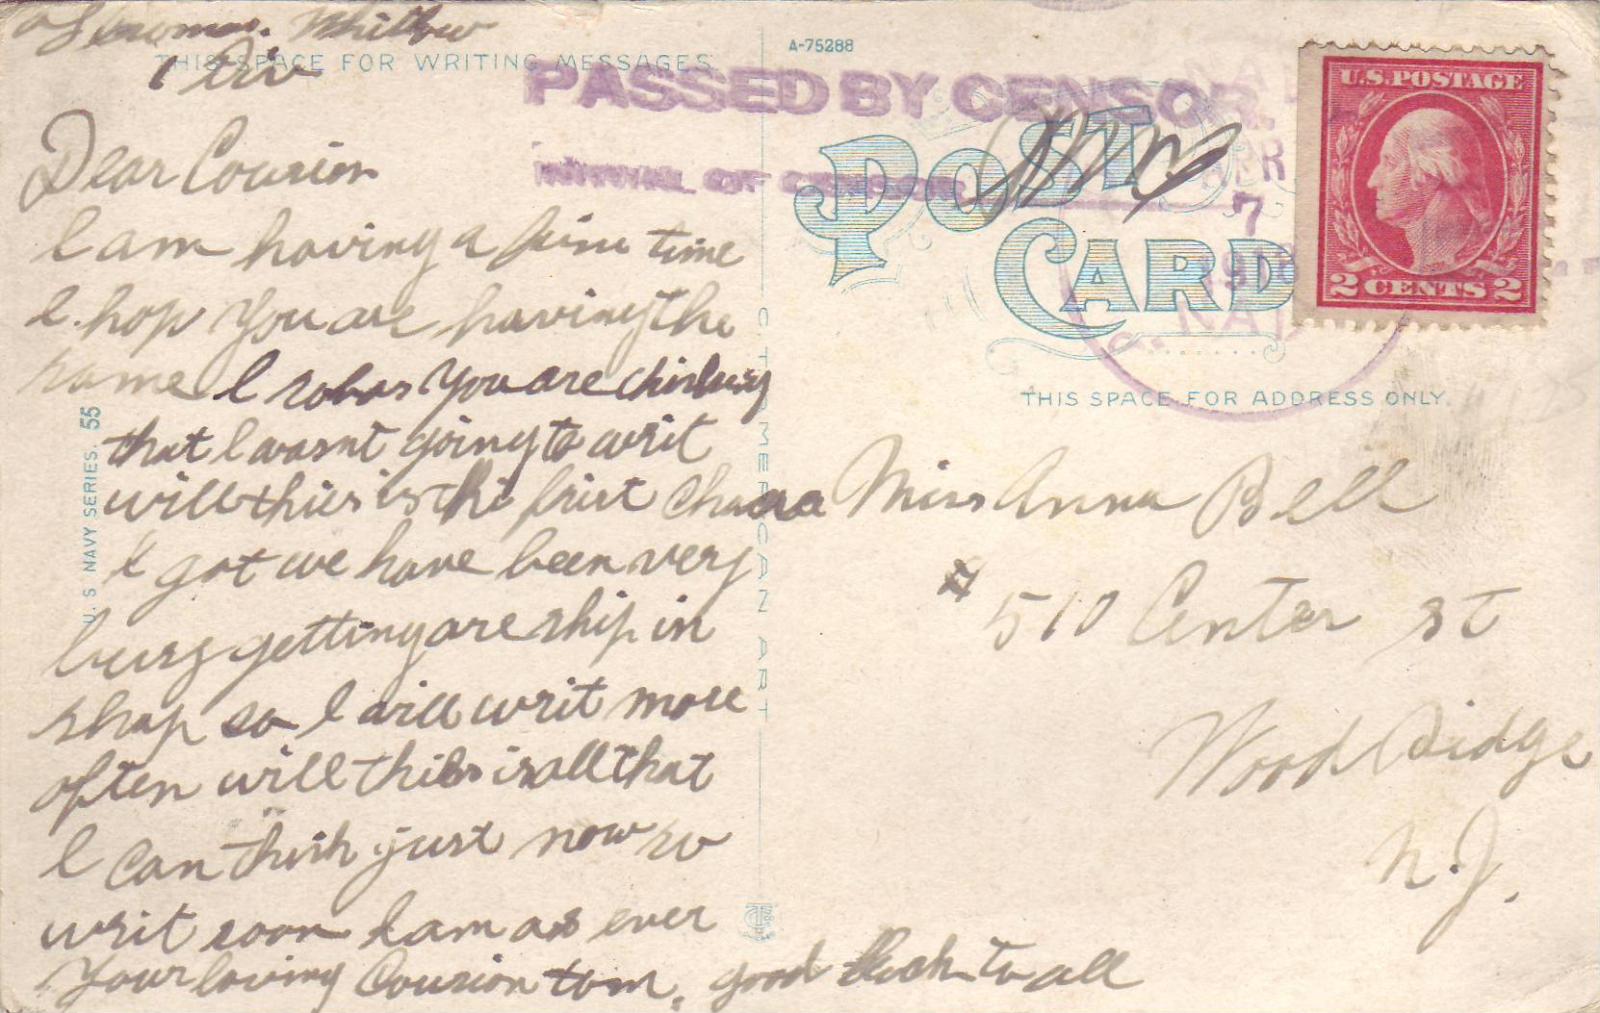 Thomas. Whitlow
1 Div
THIS SPACE FOR WRITING MESSAGES
Dear Cousion
I am having a fine time
I. hop you are having the
same I you are
that I wasnt going to writ
will this is the first
I got we have been very
busy getting are ship in
shap so I will writ more
often will this is all that
I can think just now so
writ soon I am as ever
Your loving Cousion tom. good luck to all
U. S NAVY SERIES. 55
CT AMERICAN ART
A-75288
PASSED BY CENSOR.
OF CENSOR
POST CARD
7
1918
NAV
U.S. POSTAGE
2 CENTS 2
THIS SPACE FOR ADDRESS ONLY.
Miss Anna Bell
# 510 Center st
Wood Ridge
N.J.